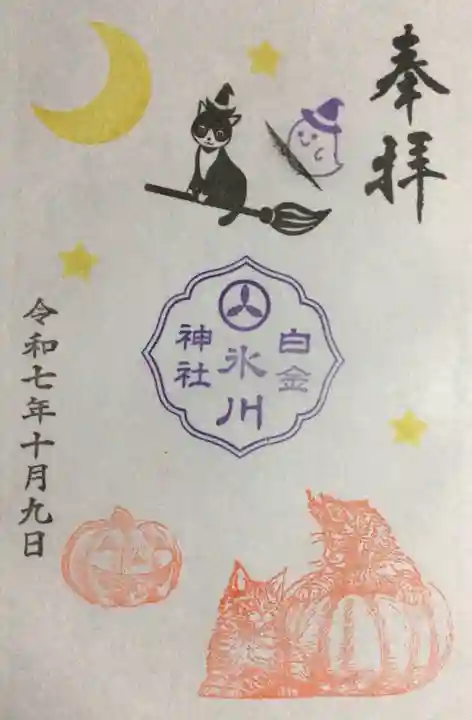 奉拝
白金
氷川
神社
令和七年十月九日